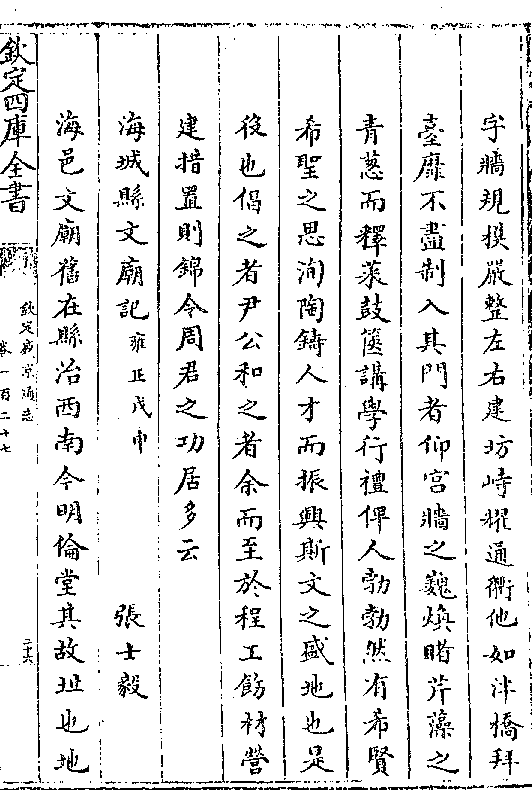 字牆規模嚴整左右建坊峙耀通衢他如泮橋拜
臺靡不盡制入其門者仰宮牆之巍煥睹芹藻之
青蔥而釋菜鼓篋講學行禮俾人勃勃然有希賢
希聖之思洵陶鑄人才而振興斯文之盛地也是
役也倡之者尹公和之者余而至於程工飭材營
建措置則錦令周君之功居多云
海城縣文廟記 雍正戊申 張士毅
海邑文廟舊在縣治西南今明倫堂其故址也地
欽定四庫全書
欽定盛京通志
卷一百二十七
二十六